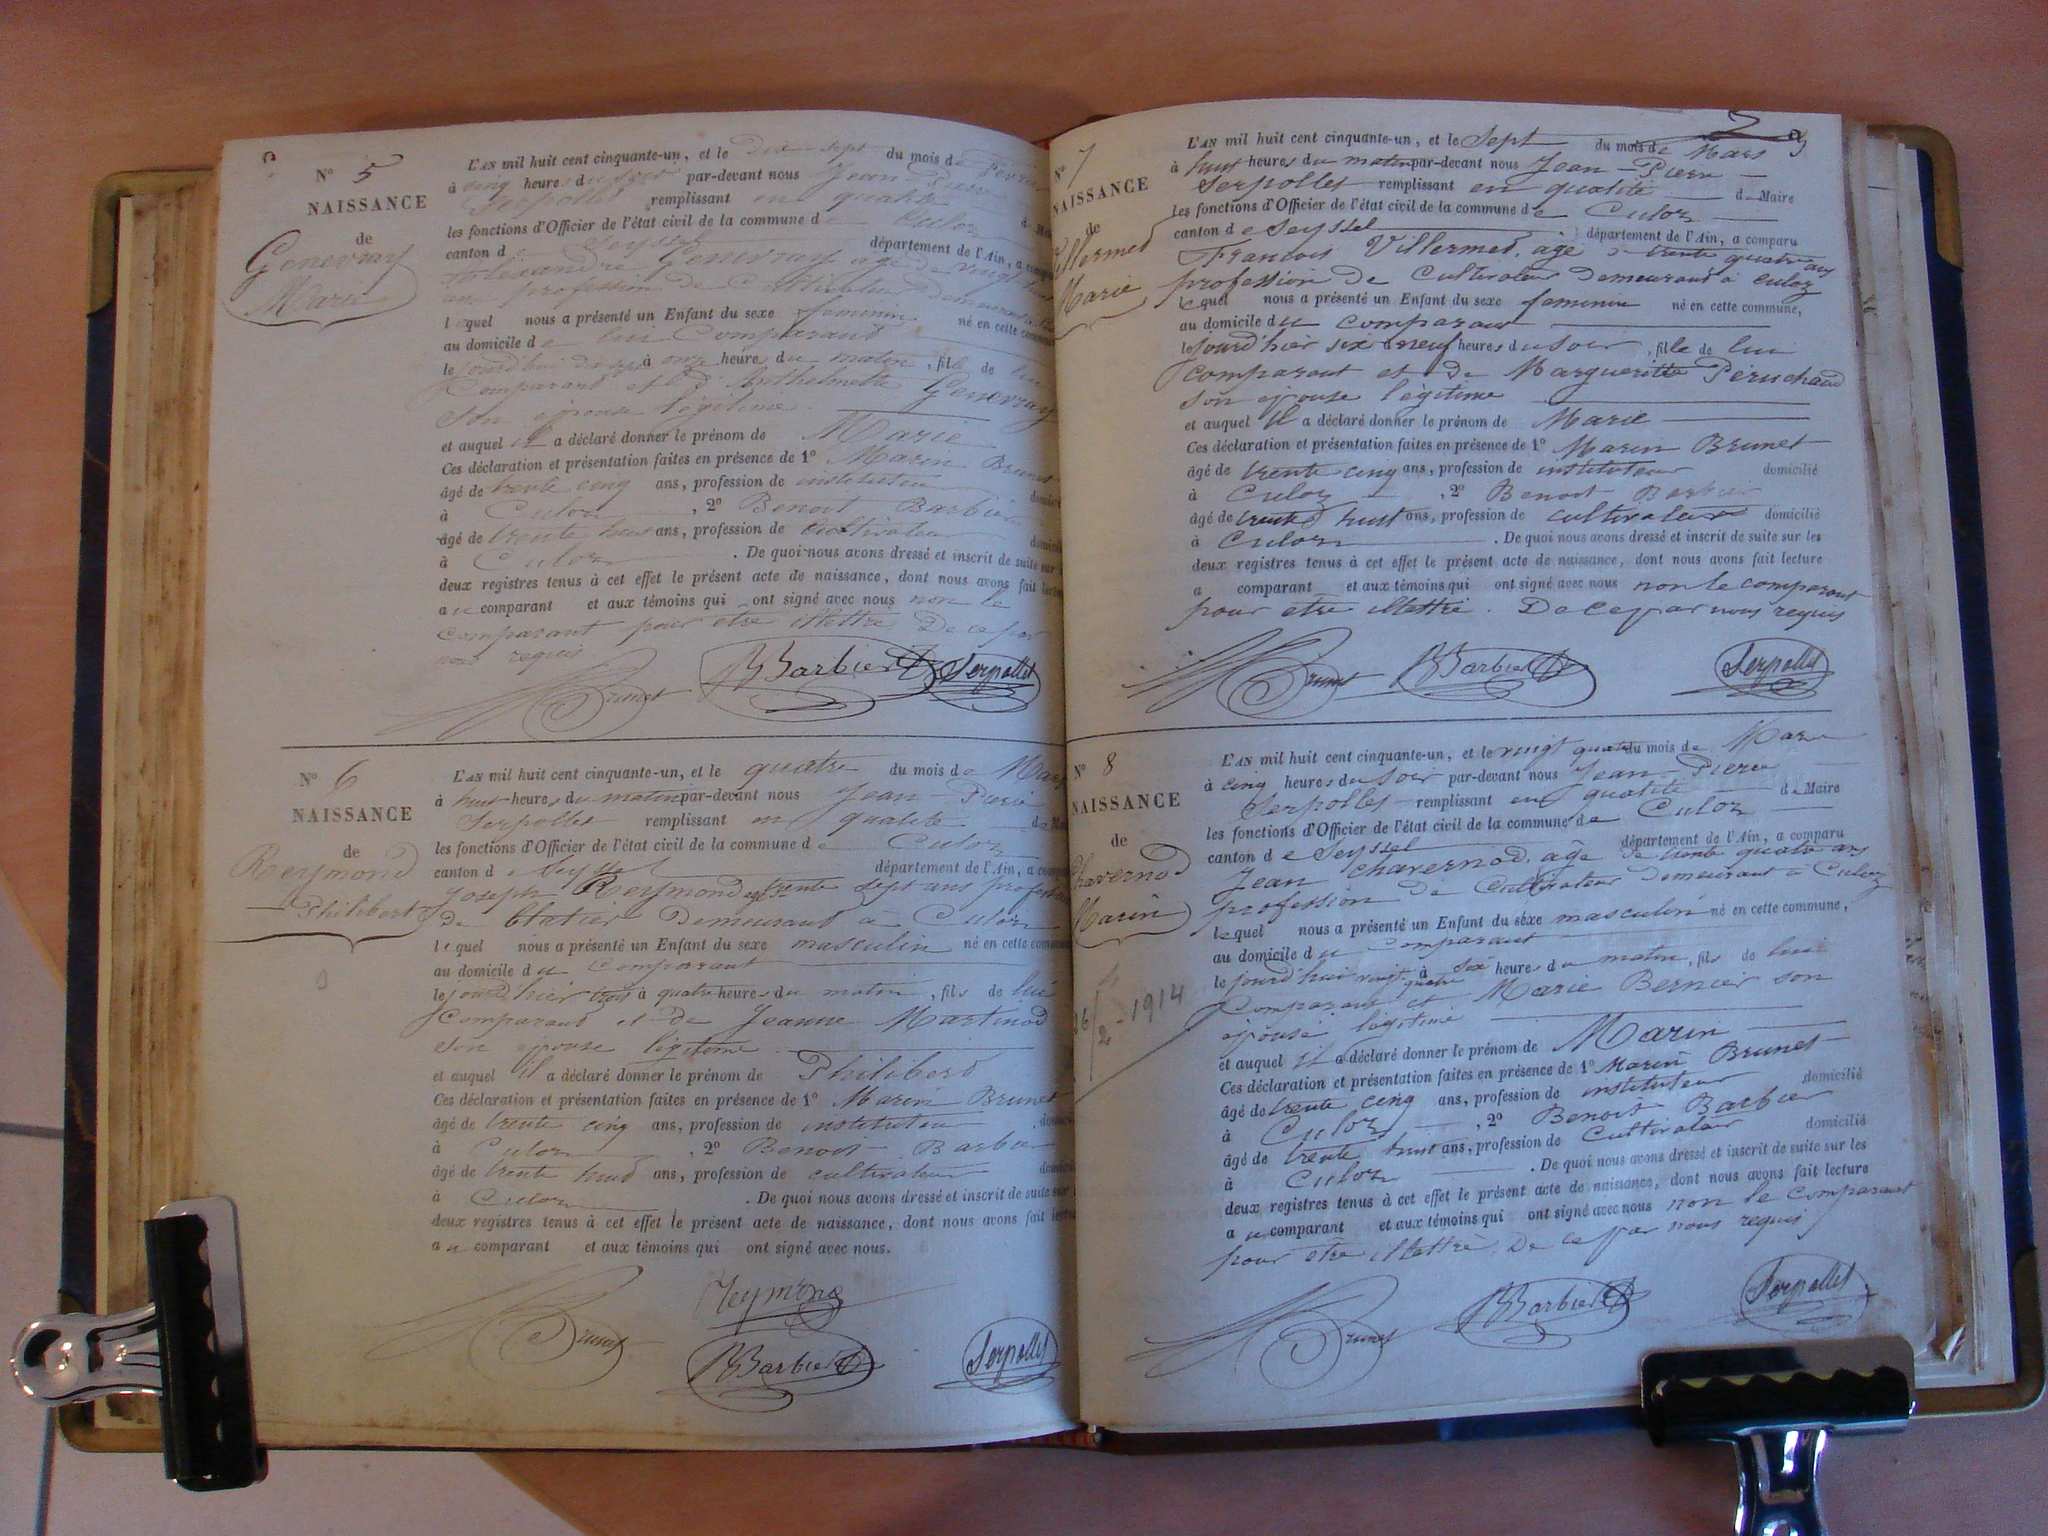 N° 5
NAISSANCE
de
Genevray
Marie
L'AN mil huit cent cinquante-un, et le Dix sept du mois de Février
à cinq heures du soir par-devant nous Jean Pierre
Serpollet remplissant en qualité de
les fonctions d'Officier de l'état civil de la commune de Culoz
canton de Seyssel département de l'Ain, a comparu
Alexandre Genevray âgé de vingt huit
ans profession de Cultivateur demeurant à
lequel nous a présenté un Enfant du sexe feminin né en cette commune
au domicile de lui Comparant
le jourd'hui dix sept à onze heures du matin, fille de lui
Comparant et d'Anthelmette Genevray
son épouse légitime
et auquel il a déclaré donner le prénom de Marie
Ces déclaration et présentation faites en présence de 1° Marin Brunet
âgé de trente cinq ans, profession de instituteur
à Culoz, 2° Benoit Barbier
âgé de trente huit ans, profession de cultivateur
à Culoz. De quoi nous avons dressé et inscrit de suite sur
deux registres tenus à cet effet le présent acte de naissance, dont nous avons fait lecture
au comparant et aux témoins qui ont signé avec nous non le
comparant pour etre illettré De ce par
nous requis
Brunet BBarbier Serpollet
N° 6
NAISSANCE
de
Reymond
Philibert
L'AN mil huit cent cinquante-un, et le quatre du mois de Mars
à huit heures du matin par-devant nous Jean Pierre
Serpollet remplissant en qualité de
les fonctions d'Officier de l'état civil de la commune de Culoz
canton de Seyssel département de l'Ain, a comparu
Joseph Reymond âgé trente sept ans profession
de demeurant à Culoz
lequel nous a présenté un Enfant du sexe masculin né en cette commune
au domicile du Comparant
le jourd'hier trois à quatre heures du matin, fils de lui
Comparant et de Jeanne Martinod
son épouse légitime
et auquel il a déclaré donner le prénom de Philibert
Ces déclaration et présentation faites en présence de 1° Marin Brunet
âgé de trente cinq ans, profession de instituteur
à Culoz, 2° Benoit Barbier
âgé de trente huit ans, profession de cultivateur
à Culoz. De quoi nous avons dressé et inscrit de suite sur
deux registres tenus à cet effet le présent acte de naissance, dont nous avons fait lecture
au comparant et aux témoins qui ont signé avec nous.
Reymond
Brunet BBarbier Serpollet
N° 7
NAISSANCE
de
Villermet
Marie
L'AN mil huit cent cinquante-un, et le Sept du mois de Mars
à huit heures du matin par-devant nous Jean-Pierre
Serpollet remplissant en qualité de Maire
les fonctions d'Officier de l'état civil de la commune de Culoz
canton de Seyssel département de l'Ain, a comparu
Francois Villermet, age de trente quatre ans
profession de Cultivateur demeurant à culoz
lequel nous a présenté un Enfant du sexe feminin né en cette commune,
au domicile du comparant
le jourd'hier six à neuf heures du soir, fille de lui
comparant et de Margueritte Péruchaud
son épouse légitime
et auquel il a déclaré donner le prénom de Marie
Ces déclaration et présentation faites en présence de 1° Marin Brunet
âgé de trente cinq ans, profession de instituteur domicilié
à Culoz, 2° Benoit Barbier
âgé de trente huit ans, profession de cultivateur domicilié
à Culoz. De quoi nous avons dressé et inscrit de suite sur les
deux registres tenus à cet effet le présent acte de naissance, dont nous avons fait lecture
a comparant et aux témoins qui ont signé avec nous non le comparant
pour etre illettré. De ce par nous requis
Brunet BBarbier Serpollet
N° 8
NAISSANCE
de
Chavernod
Marin
2-1914
L'AN mil huit cent cinquante-un, et le vingt quatre du mois de Mars
à cinq heures du soir par-devant nous Jean-Pierre
Serpollet remplissant en qualité de Maire
les fonctions d'Officier de l'état civil de la commune de Culoz
canton de Seyssel département de l'Ain, a comparu
Jean Chavernod, âgé de trente quatre ans
profession de Cultivateur demeurant à Culoz
lequel nous a présenté un Enfant du sexe masculin né en cette commune,
au domicile du comparant
le jourd'hui vingt quatre à six heures du matin, fils de lui
Comparant et Marie Bernier son
épouse légitime
et auquel il a déclaré donner le prénom de Marin
Ces déclaration et présentation faites en présence de 1° Marin Brunet
âgé de trente cinq ans, profession de instituteur domicilié
à Culoz, 2° Benoit Barbier
âgé de trente huit ans, profession de Cultivateur domicilié
à Culoz. De quoi nous avons dressé et inscrit de suite sur les
deux registres tenus à cet effet le présent acte de naissance, dont nous avons fait lecture
au comparant et aux témoins qui ont signé avec nous non le comparant
pour etre illettré. De ce par nous requis
Brunet BBarbier Serpollet